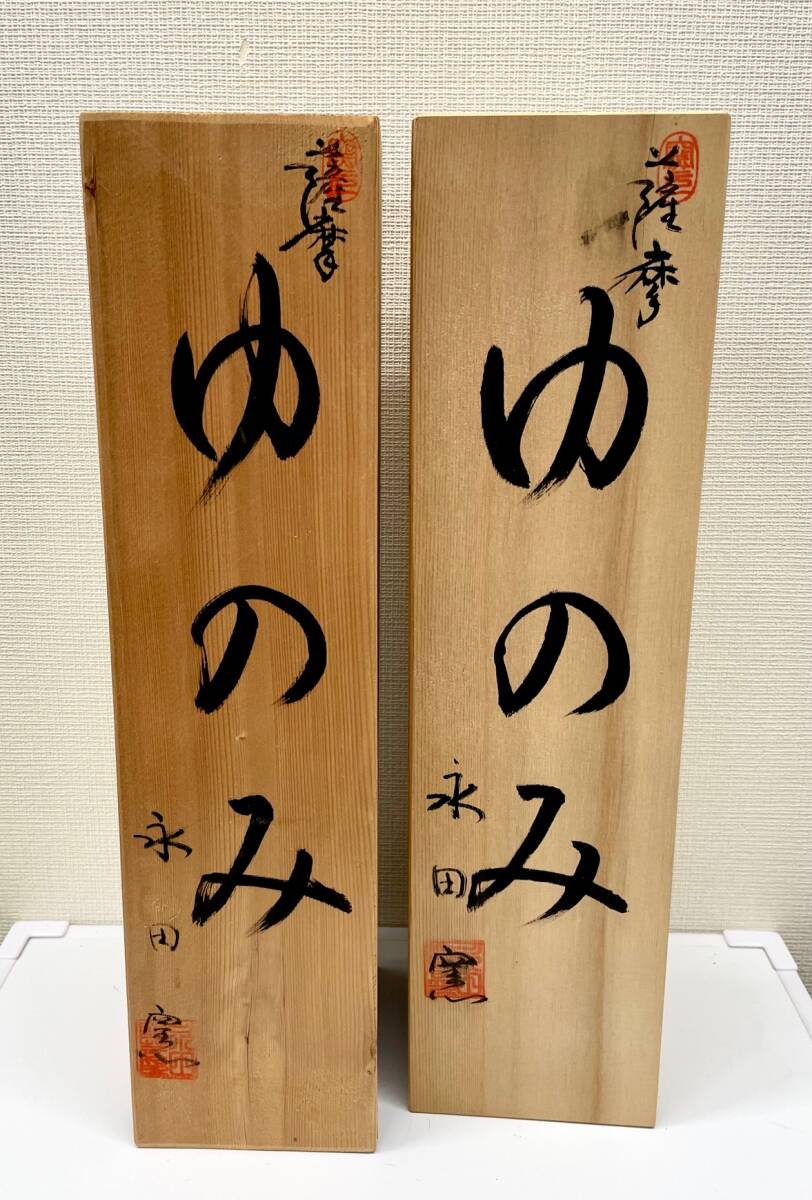 薩摩
ゆのみ
永田窯
薩摩
ゆのみ
永田窯